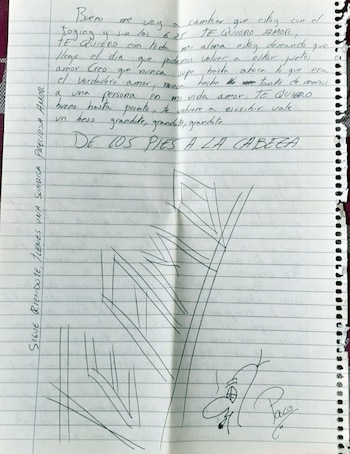 Bueno me voy a cambiar que estoy con el
toging y son las 6.25 TE QUIERO AMOR,
TE QUIERO con toda mi alma estoy deseando que
llege el dia que podamos volver a estar juntos
amor creo que nunca supe hasta ahora lo que era
el verdadero amor, nunca heche tanto de menos
a una persona en mi vida amor, TE QUIERO
bueno hasta pronto, te volvere a escribir vale
un beso grandote, grandote, grandote
DE LOS PIES A LA CABEZA
SIGUE RIENDOTE, TIENES UNA SONRISA PRECIOSA AMOR
Paco